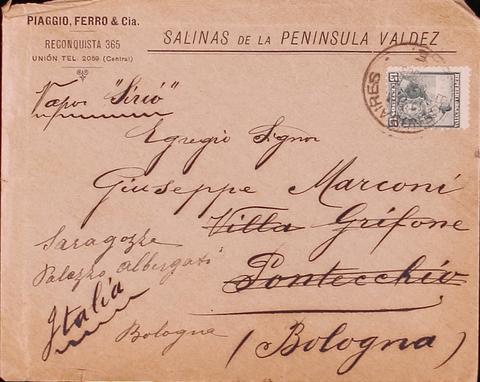 PIAGGIO, FERRO & Cia.
RECONQUISTA 365
UNIÓN TEL. 2059 (Central)
SALINAS DE LA PENINSULA VALDEZ
AIRES
Vapor "Sirio"
Egregio Signor
Giuseppe Marconi
Villa Grifone
Pontecchio
(Bologna)
Saragozza
Palazzo Albergati
Italia
Bologna